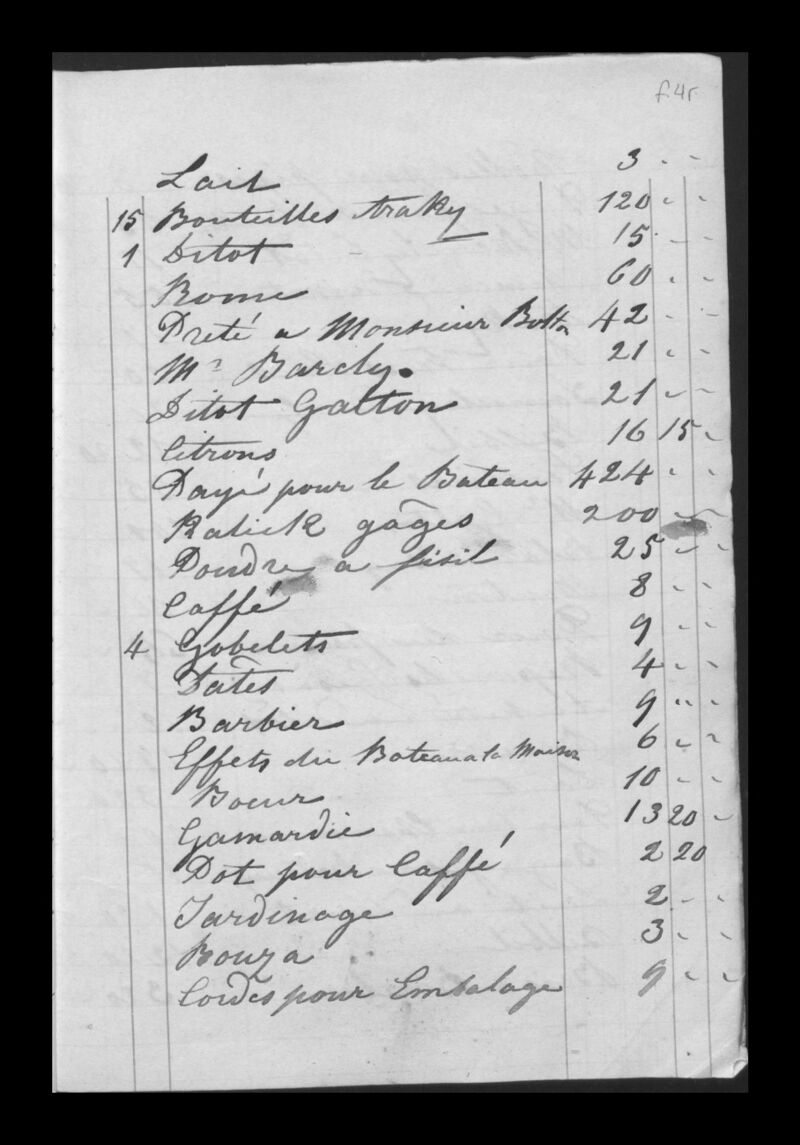 f.4r
Lait 3 " "
15 Bouteilles Araky 120 " "
1 Ditot 15 " "
Rome 60 " "
Preté a Monsieur Bolton 42 " "
Mr Barcly. 21 " "
Ditot Galton 21 " "
Citrons 16 15 "
Payé pour le Bateau 424 " "
Kalick gâges 200 " "
Poudre a fusil 25 " "
Caffé 8 " "
4 Gobelets 9 " "
Dates 4 " "
Barbier 9 " "
Effets du Bateau a la Maison 6 " "
Boeur 10 " "
Gamardie 13 20 "
Pot pour Caffé 2 20
Jardinage 2 " "
Bouza 3 " "
Cordes pour Embalage 9 " "